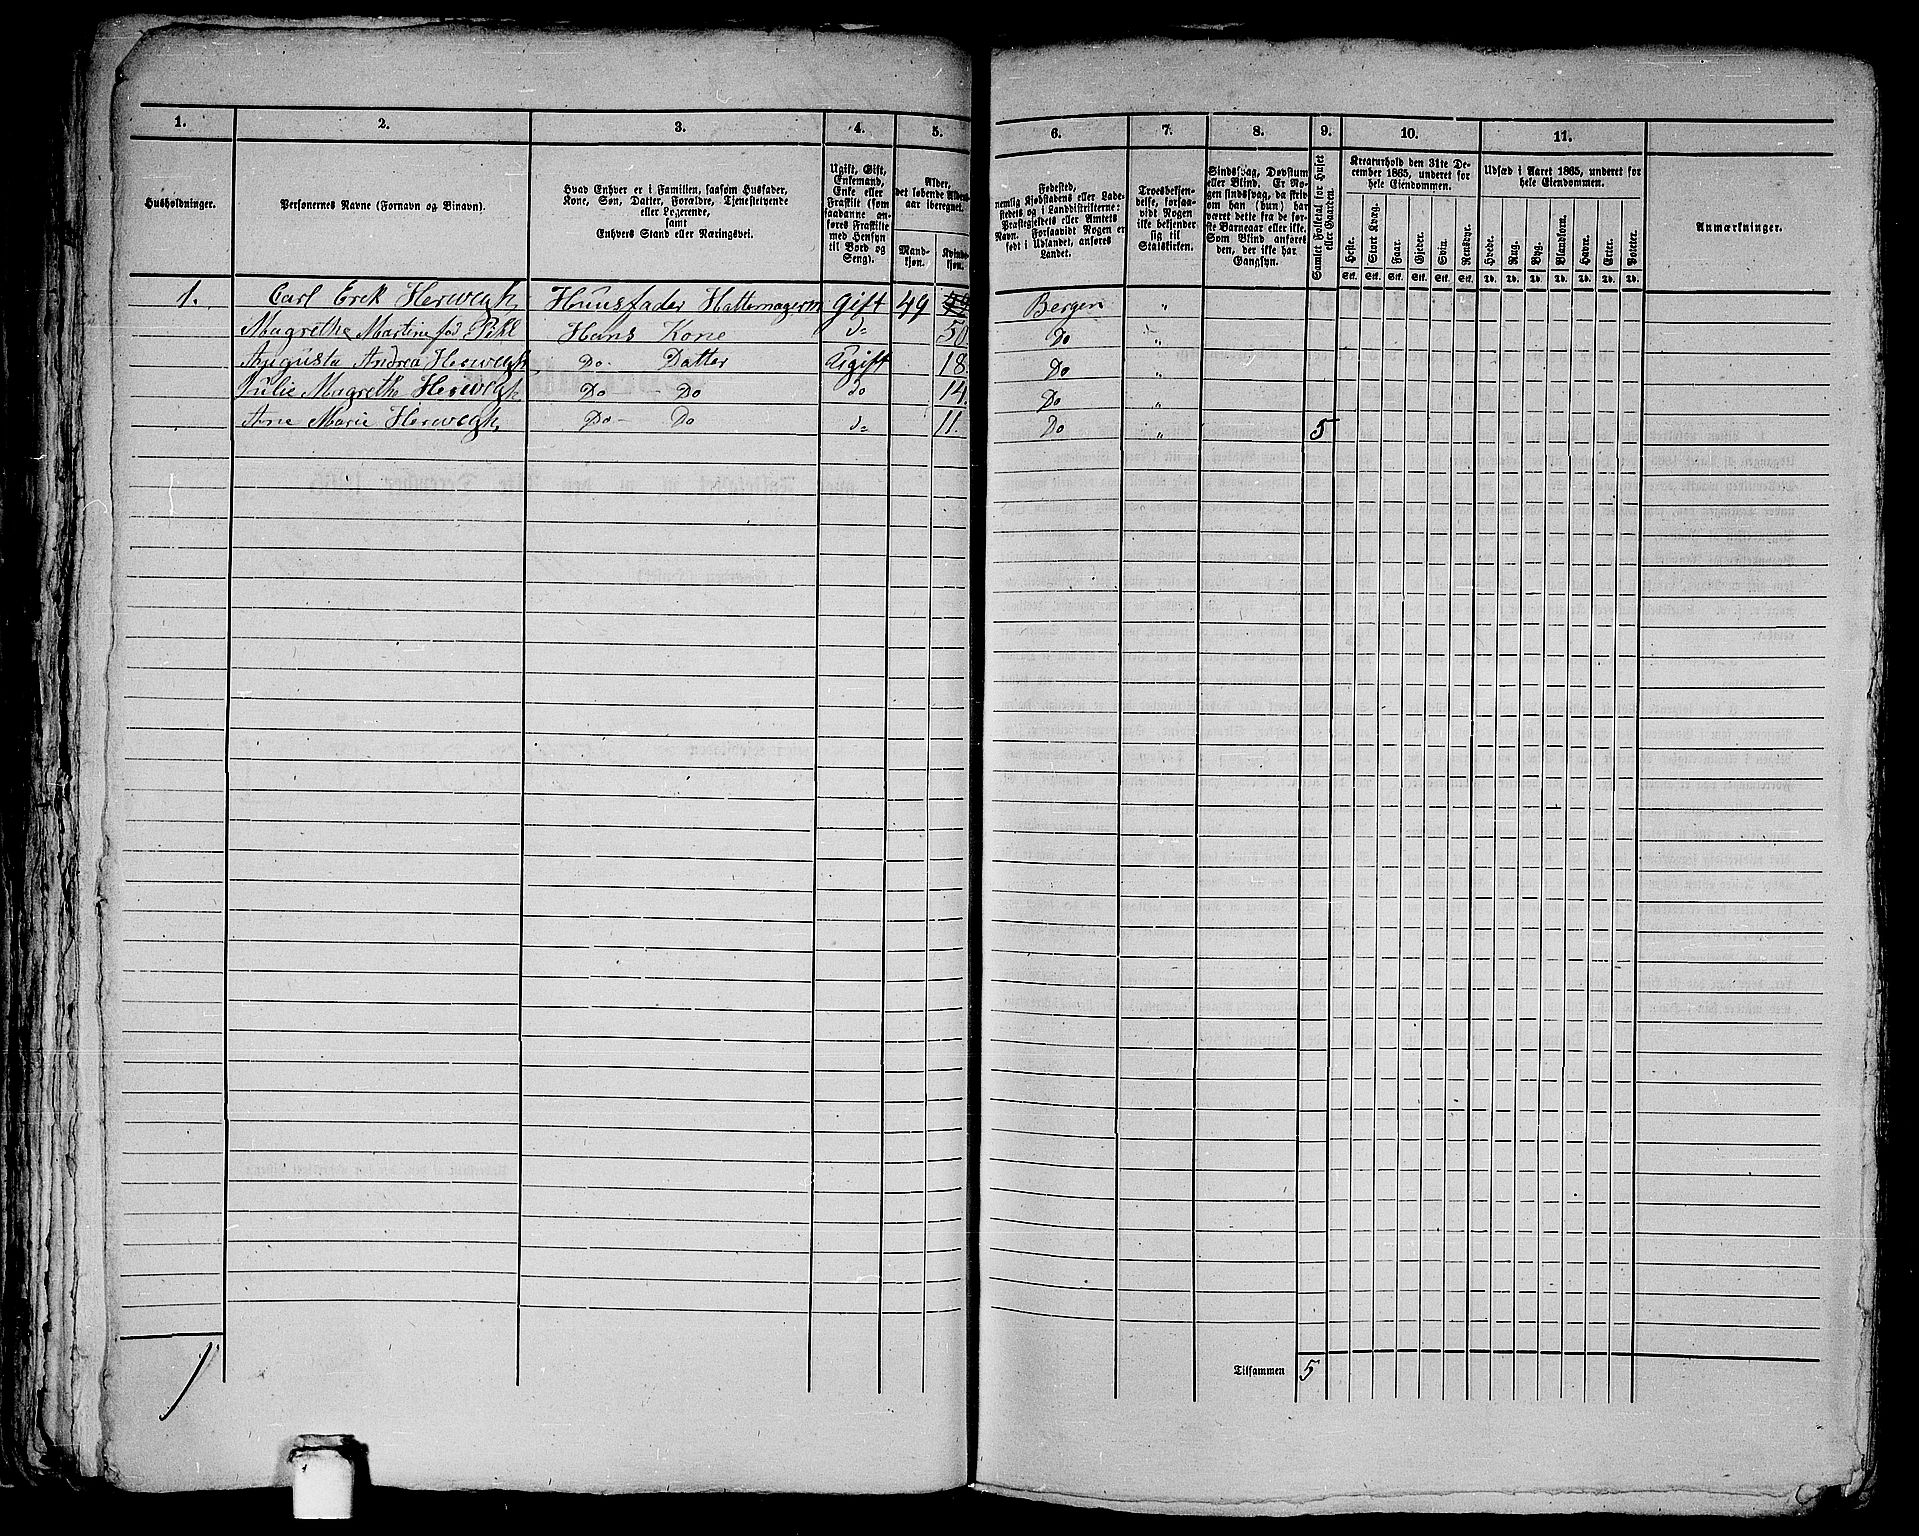 1. 2. 3. 4. 5. 6. 7. 8. 9. 10. 11.
Husholdninger.
Personernes Navne (Fornavn og Binavn).
Hvad Enhver er i Familien, saasom Husfader,
Kone, Søn, Datter, Forældre, Tjenestetyende
eller Logerende,
samt
Enhvers Stand eller Næringsvei.
Ugift, Gift,
Enkemand,
Enke eller
Fraskilt (som
saadanne an-
føres Fraskilte
med Hensyn
til Bord og
Seng).
Alder,
det løbende Alders-
aar iberegnet.
Mand-
kjøn.
Kvinde-
kjøn.
Fødested,
nemlig Kjøbstadens eller Lade-
stedets og i Landdistrikterne:
Præstegjeldets eller Amtets
Navn. Forsaavidt Nogen er
født i Udlandet, anføres
Landet.
Troesbekjen-
delse, forsaa-
vidt Nogen
ikke bekjender
sig til
Statskirken.
Sindssvag, Døvstum
eller Blind. Er No-
gen sindssvag, da skriv
om han (hun) har
været dette fra de før-
ste Barneaar eller ikke.
Som Blind anføres
den, der ikke har
Gangsyn.
Samlet Folketal for Huset
eller Gaarden.
Kreaturhold den 31te De-
cember 1865, underet for
hele Eiendommen.
Heste. Stort Kvæg. Faar. Gjeder. Svin. Rensdyr.
Stk. Stk. Stk. Stk. Stk. Stk.
Udsæd i Aaret 1865, underet for
hele Eiendommen.
Hvede. Rug. Byg. Blandkorn. Havre. Erter. Poteter.
Td. Td. Td. Td. Td. Td. Td.
Anmærkninger.
1. Carl Erek Herwegh Huusfader Hattemagerm Gift 49 Bergen "
Magrethe Martine fød Pihl Hans Kone do 50 Do "
Augusta Andrea Herwegh Do Datter Ugift 18. Do "
Julie Magrethe Herwegh Do Do do 14. Do "
Ane Marie Herwegh Do Do do 11. Do " 5
1
Tilsammen 5